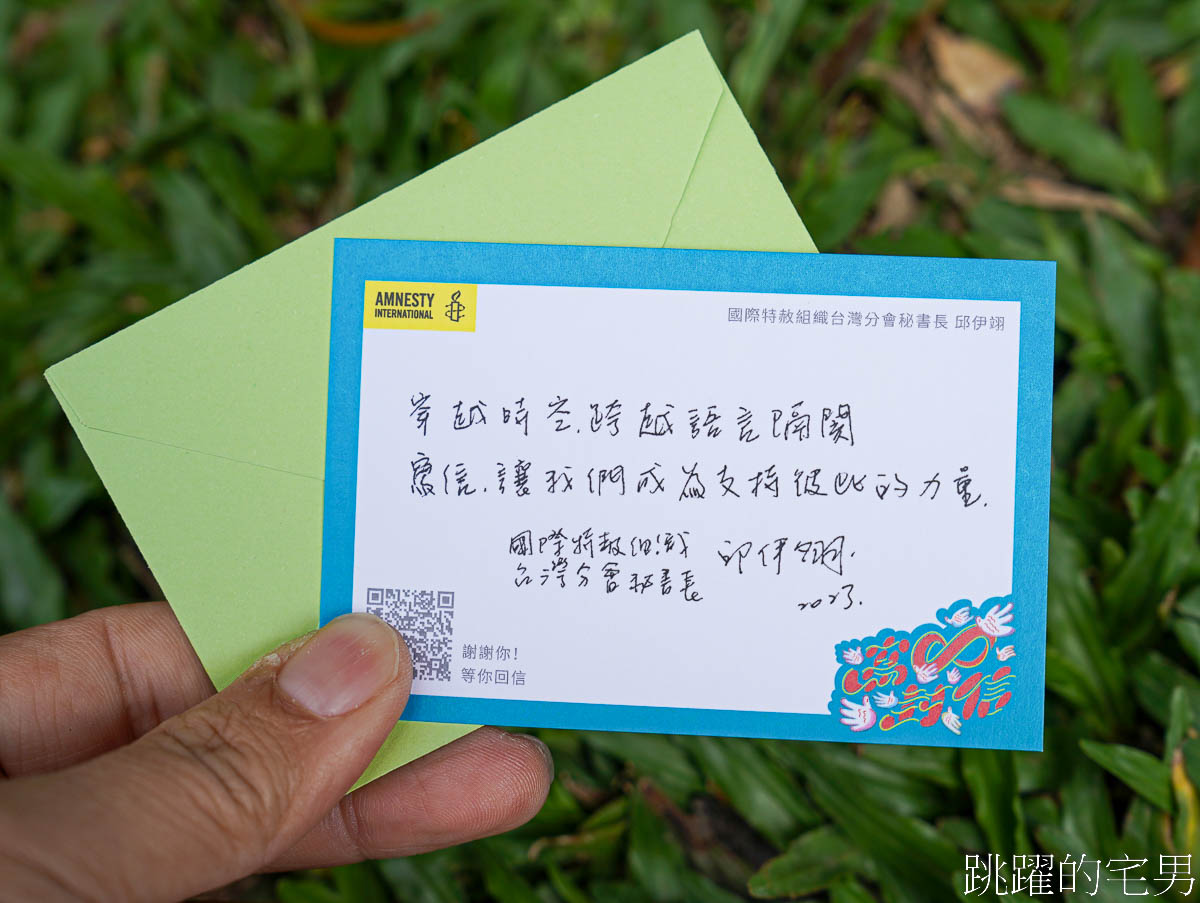 AMNESTY
INTERNATIONAL
國際特赦組織台灣分會秘書長 邱伊翎
穿越時空.跨越語言隔閡
寫信.讓我們成為支持彼此的力量.
國際特赦組織
台灣分會秘書長
邱伊翎.
2023.
謝謝你!
等你回信
寫信
跳躍的宅男